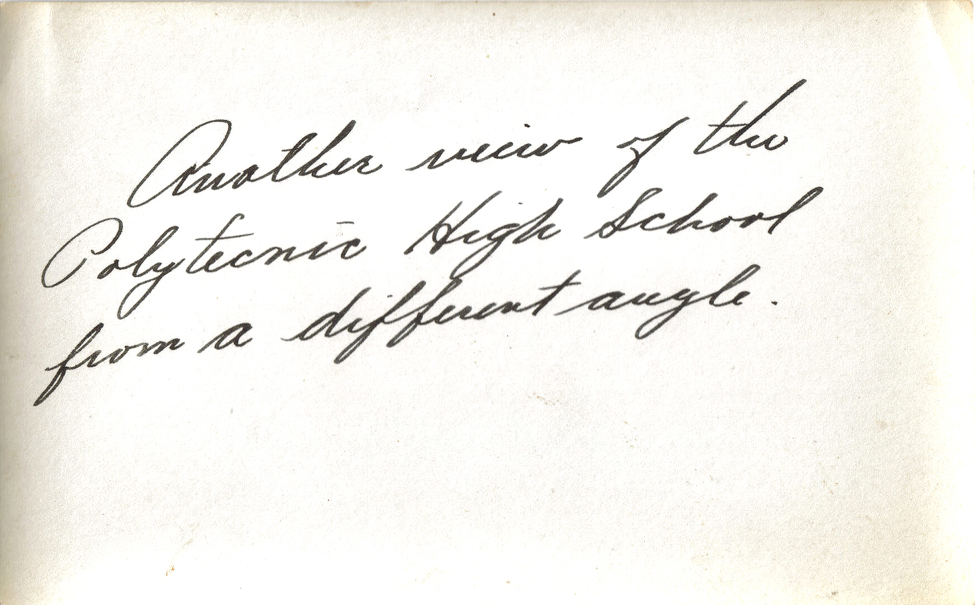 Another view of the
Polytecnic High School
from a different angle.